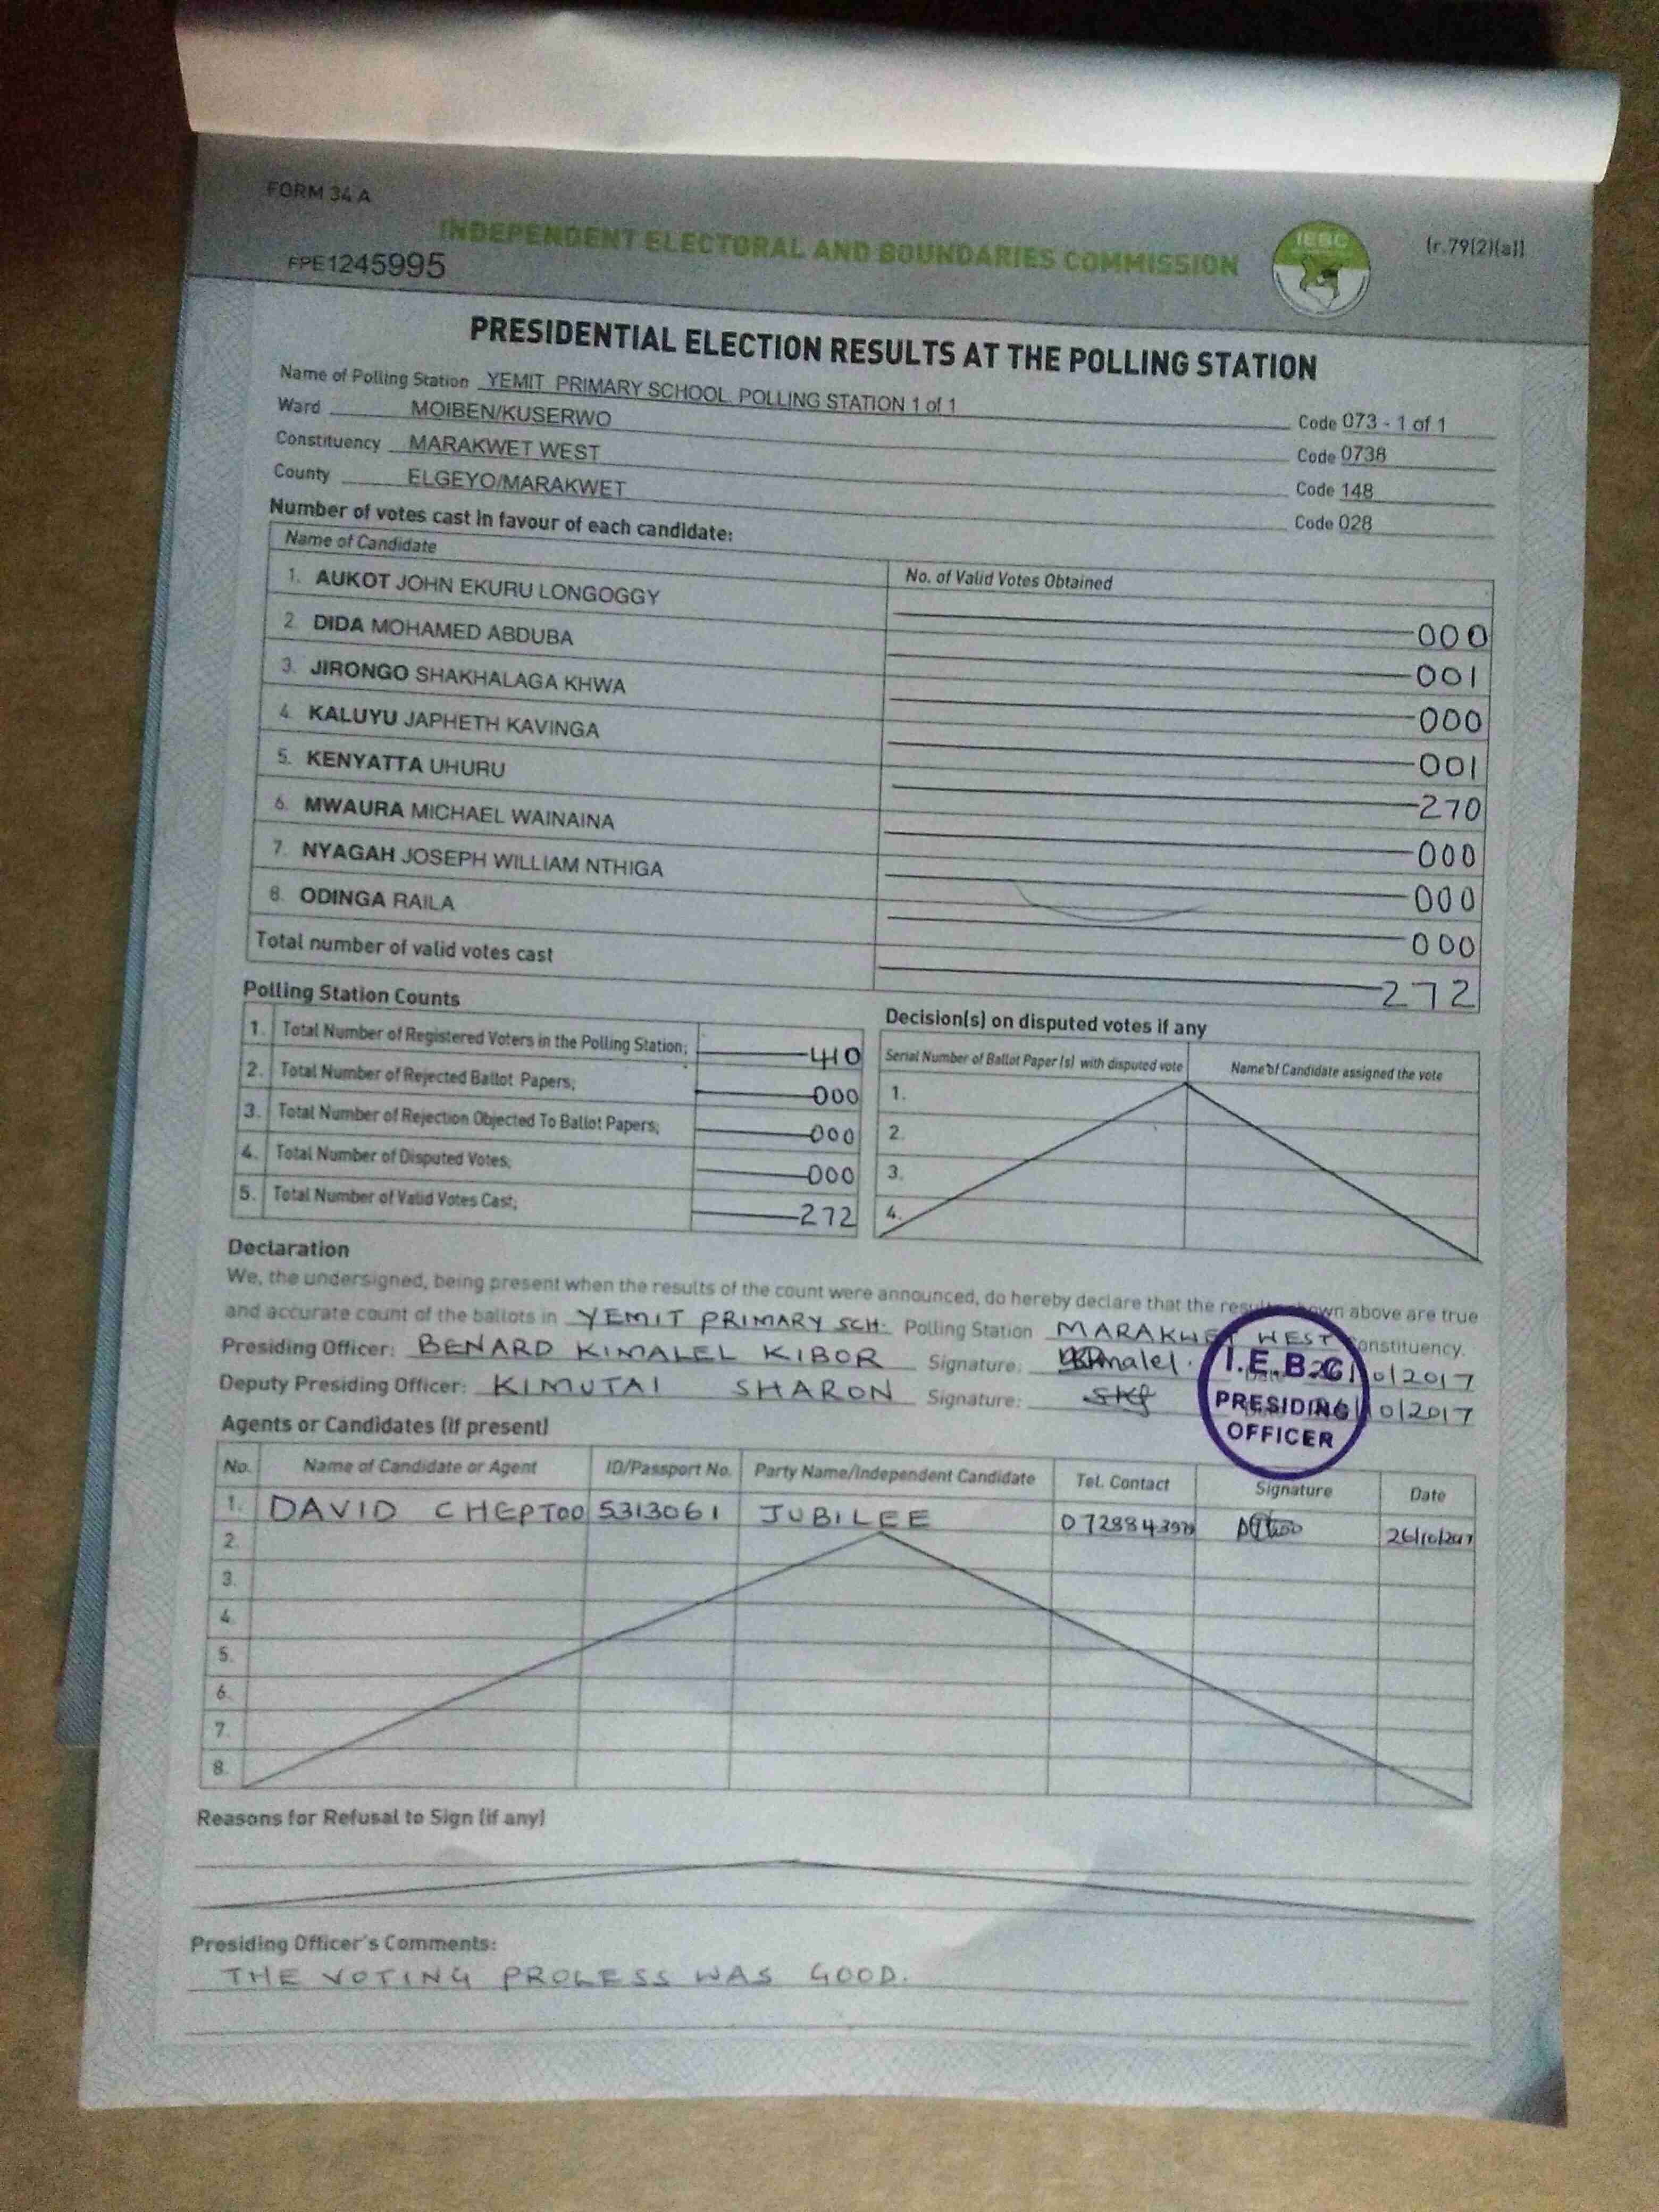 FORM 34 A
INDEPENDENT ELECTORAL AND BOUNDARIES COMMISSION
IEBC
(r.79(2)(a))
FPE1245995
PRESIDENTIAL ELECTION RESULTS AT THE POLLING STATION
Name of Polling Station YEMIT PRIMARY SCHOOL POLLING STATION 1 of 1 Code 073 - 1 of 1
Ward MOIBEN/KUSERWO Code 0738
Constituency MARAKWET WEST Code 148
County ELGEYO/MARAKWET Code 028
Number of votes cast in favour of each candidate:
Name of Candidate No. of Valid Votes Obtained
1. AUKOT JOHN EKURU LONGOGGY 000
2. DIDA MOHAMED ABDUBA 001
3. JIRONGO SHAKHALAGA KHWA 000
4. KALUYU JAPHETH KAVINGA 001
5. KENYATTA UHURU 270
6. MWAURA MICHAEL WAINAINA 000
7. NYAGAH JOSEPH WILLIAM NTHIGA 000
8. ODINGA RAILA 000
Total number of valid votes cast 272
Polling Station Counts
1. Total Number of Registered Voters in the Polling Station; 410
2. Total Number of Rejected Ballot Papers; 000
3. Total Number of Rejection Objected To Ballot Papers; 000
4. Total Number of Disputed Votes; 000
5. Total Number of Valid Votes Cast; 272
Decision(s) on disputed votes if any
Serial Number of Ballot Paper (s) with disputed vote Name of Candidate assigned the vote
1.
2.
3.
4.
Declaration
We, the undersigned, being present when the results of the count were announced, do hereby declare that the results shown above are true
and accurate count of the ballots in YEMIT PRIMARY SCH. Polling Station MARAKWET WEST Constituency.
Presiding Officer: BENARD KIMALEL KIBOR Signature: Date 26/10/2017
Deputy Presiding Officer: KIMUTAI SHARON Signature: 26/10/2017
I.E.B.C
PRESIDING
OFFICER
Agents or Candidates (if present)
No. Name of Candidate or Agent ID/Passport No. Party Name/Independent Candidate Tel. Contact Signature Date
1. DAVID CHEPTOO 5313061 JUBILEE 26/10/2017
2.
3.
4.
5.
6.
7.
8.
Reasons for Refusal to Sign (if any)
Presiding Officer's Comments:
THE VOTING PROCESS WAS GOOD.